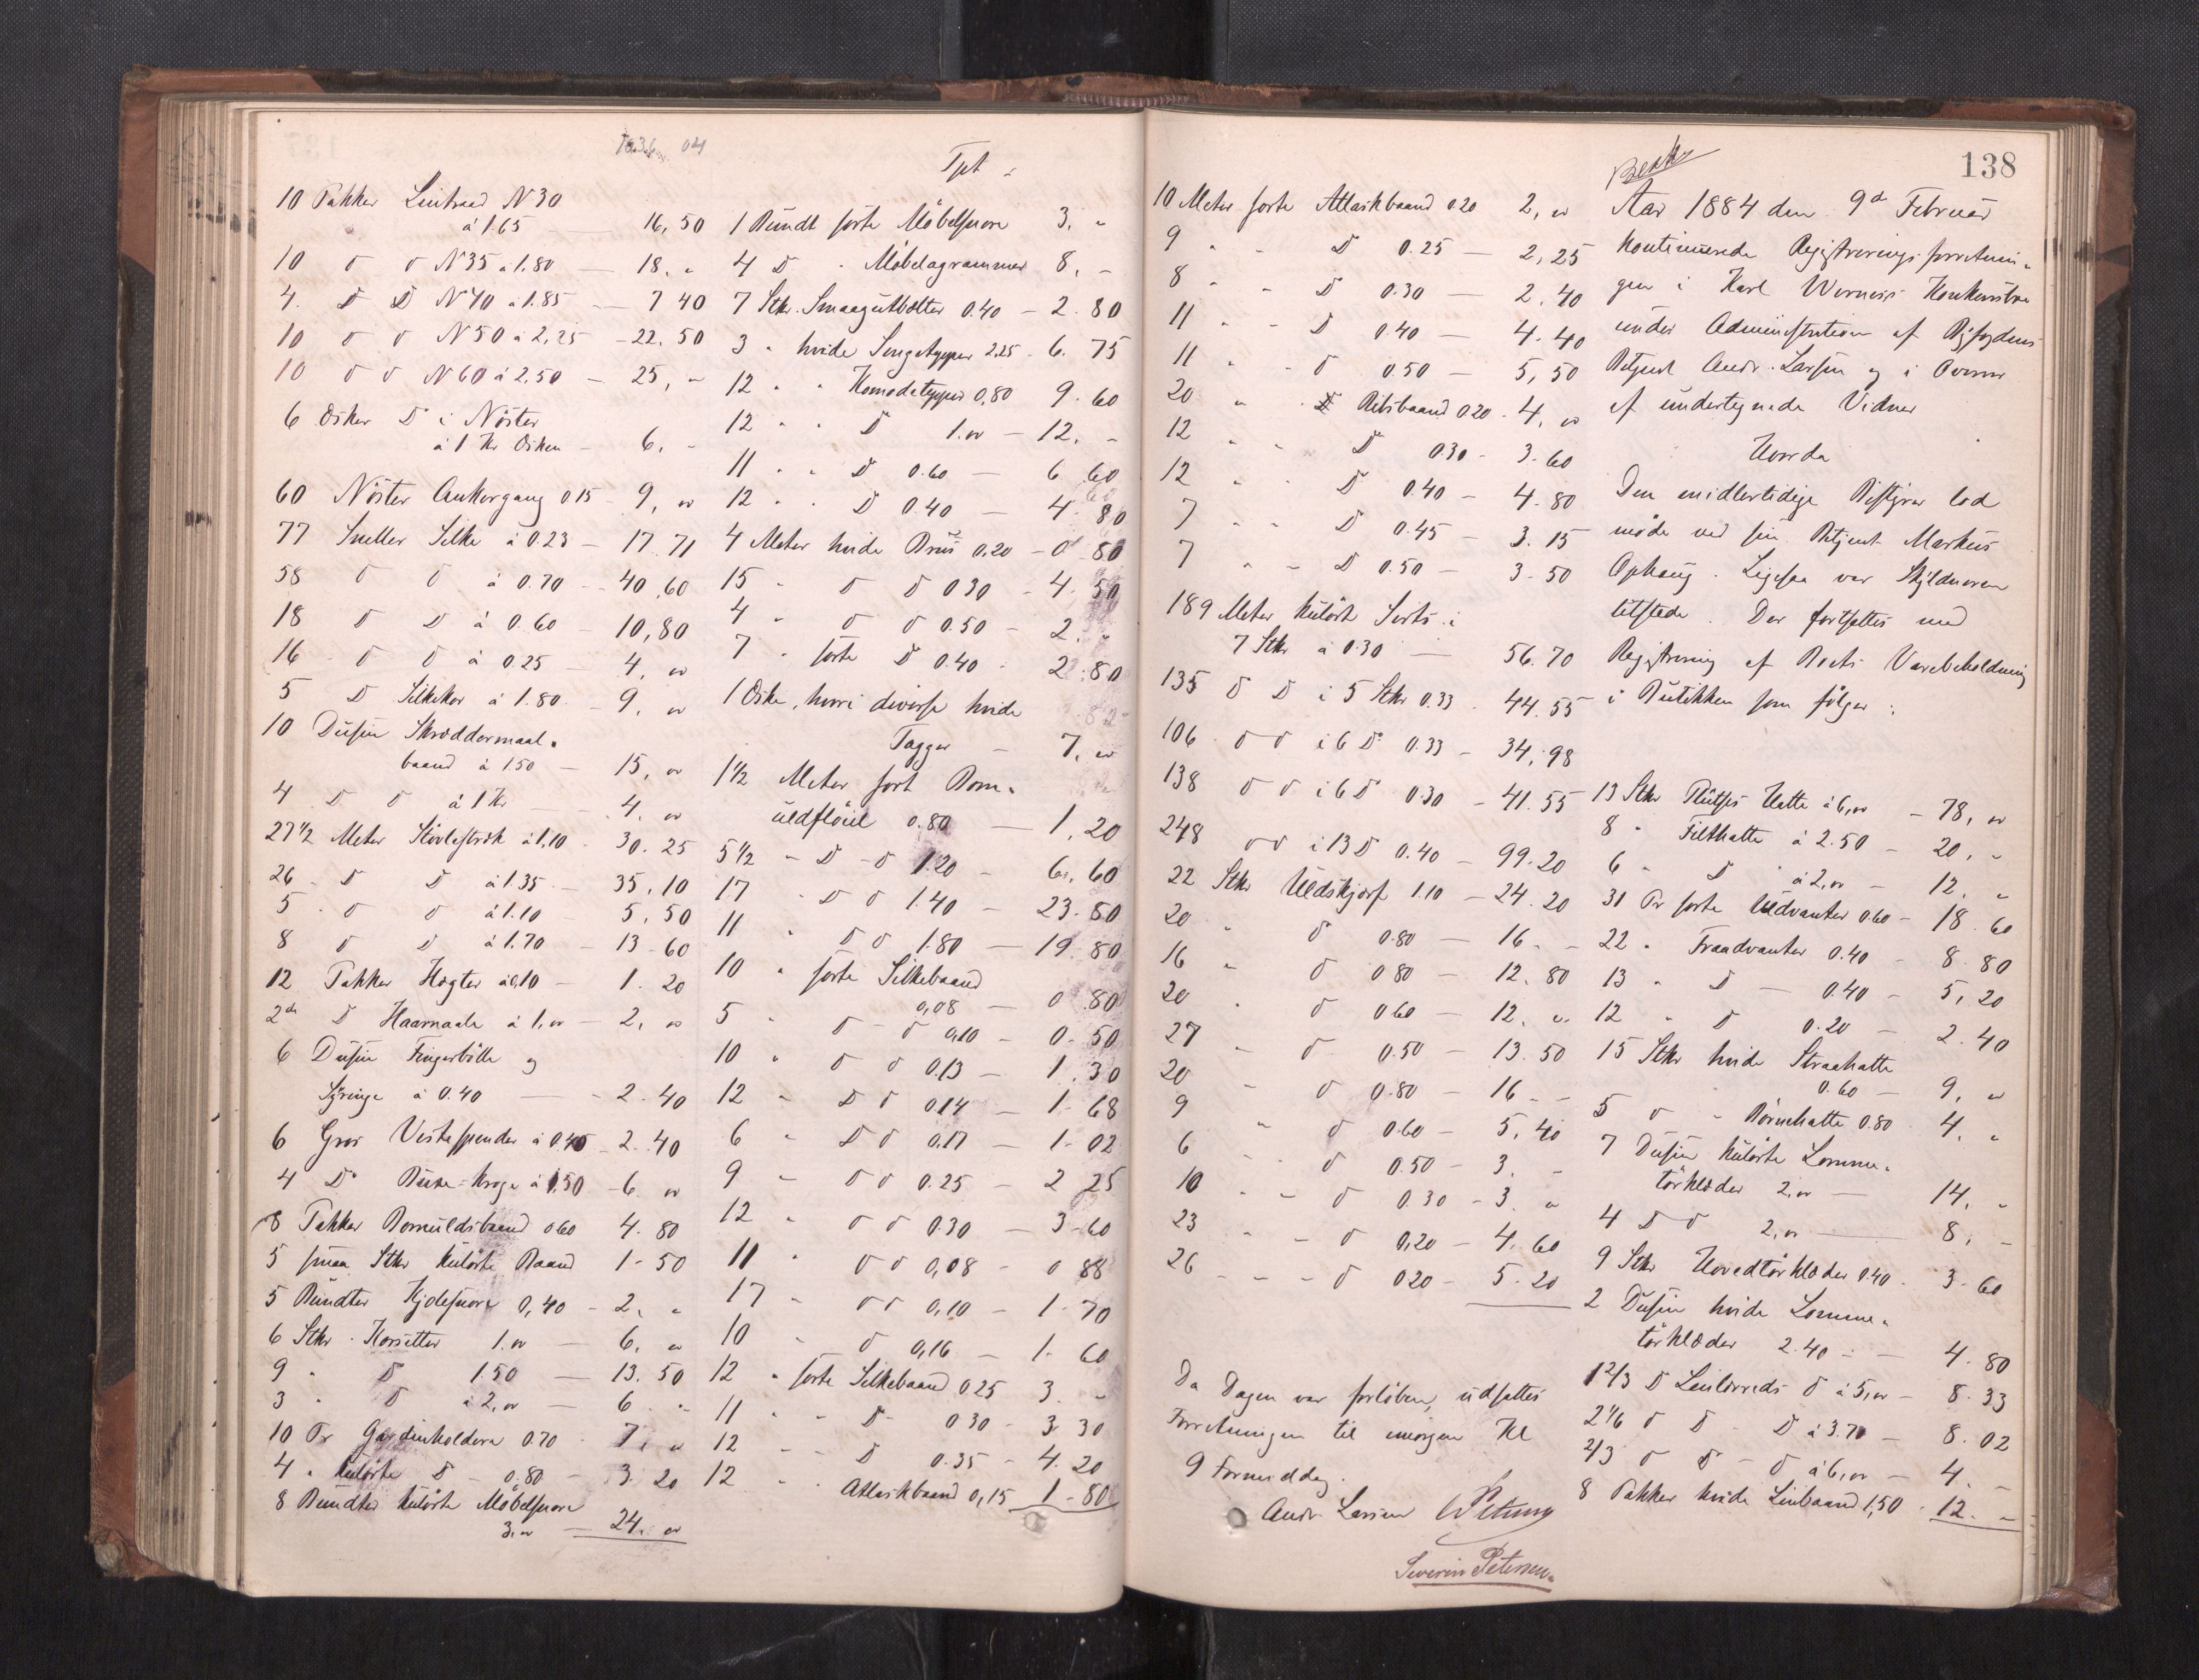 10 Pakker Lintraad N 30
à 1.65 — 16,50
10 D D N 35 à 1.80 — 18. "
4. D D N 40 à 1.85 — 7 40
10 D D N 50 à 2,25 - 22. 50
10 D D N 60 à 2.50 — 25, "
6 Esker Do i Nöster
à 1 Kr Esken — 6, "
60 Nöster Ankergang 0 15 - 9, "
77 Sneller Silke à 0.23 — 17 71
58 D D à 0.70 - 40,60
18 D D à 0.60 - 10,80
16 D D à 0.25 - 4, "
5 D Silkekor à 1.80 - 9, "
10 Dusin Skræddermaal-
baand à 150 — 15, "
4 D D à 1 Kr — 4, "
27 1/2 Meter Stövlestræk à 1,10 - 30. 25
26 D D à 1.35 - 35,10
5 D D à 1.10 - 5,50
8 D D à 1.70 - 13 60
12 Pakker Hægter à 0,10 - 1. 20
2 D Haarnaale à 1, " - 2, "
6 Dusin Fingerbölle og
Syringe à 0.40 — 2. 40
6 Gros Vestespender à 0.40 - 2. 40
4 Do Buxe-Kroge à 1,50 - 6 "
8 Pakker Bomuldsbaand 0 60 4. 80
5 smaa Stkr kulörte Baand 1 - 50
5 Bundter Kjolesnore 0,40 - 2, "
6 Stkr. Korsetter 1. " — 6, "
9 " D 1.50 — 13. 50
3 " D à 2, " — 6. "
10 Pr Gardinholdere 0.70 - 7, "
4 " kulörte D - 0.80 - 3. 20
8 Bundter kulörte Möbelsnore
3, " — 24. "
Tpt
1 Bundt sorte Möbelsnore 3, "
4 D " Möbelagrammer 8, -
7 Stkr. 0.40 - 2. 80
3 " hvide Sengetepper 2.25 - 6. 75
12 " " Komodetepper 0,80 9. 60
12 " " D 1. " — 12, "
11 " " D 0.60 — 6 60
12 " " D 0.40 — 4. 80
4 Meter hvide 0,20 - 0 80
15 " D D 0 30 - 4. 50
4 " D D 0.50 - 2. "
7 " sorte D 0.40 - 2. 80
1 Eske, hvori diverse hvide
Tagger — 7, "
1 1/2 Meter sort Bom-
uldflöiel 0.80 — 1,20
5 1/2 - D - D 1.20 - 6. 60
17 " D D 1.40 — 23. 80
11 " D D 1.80 — 19. 80
10 " sorte Silkebaand
0,08 — 0 80
5 " D - D 0,10 - 0. 50
10 " D D 0.13 - 1. 30
12 " D D 0.14 - 1. 68
6 " D D 0.17 — 1. 02
9 " D D 0.25 — 2 25
12 " D D 0.30 - 3. 60
11 " D D 0,08 - 0 88
17 " D D 0,10 - 1. 70
10 " D 0,16 - 1. 60
12 " sorte Silkebaand 0 25 3. "
11 " " D 0 30 - 3. 30
12 " " D 0.35 - 4. 20
12 " Atlaskbaand 0,15 1 - 80
138
10 Meter sorte Atlaskbaand 0 20 2, "
9 " - D 0.25 — 2,25
8 " " D 0.30 — 2. 40
11 " - D 0.40 — 4. 40
11 " " D 0.50 — 5,50
20 " Ribsbaand 0 20 - 4, "
12 " " D 0.30 - 3. 60
12 " " D 0.40 - 4. 80
7 " - D 0.45 - 3. 15
7 " - D 0.50 - 3. 50
189 Meter kulört Sirts i
7 Stkr à 0.30 — 56. 70
135 D D i 5 Stkr 0.33 - 44. 55
106 D D i 6 Do 0.33 - 34,98
138 D D i 6 D 0.30 - 41. 55
248 D D i 13 D 0.40 - 99. 20
22 Stkr Uldskjerf 1.10 - 24. 20
20 " D 0.80 — 16. -
16 " D 0 80 — 12. 80
20 " D 0 60 — 12. "
27 " D 0.50 - 13. 50
20 " D 0.80 - 16 -
9 " D 0.60 - 5, 40
6 - D 0.50 - 3. -
10 " - D 0.30 - 3. "
23 " - D 0,20 - 4. 60
26 - - D 0 20 - 5. 20
Da Dagen var forlöben, udsattes
Forretningen til imorgen Kl
9 Formiddag.
Andr Larsen
Severin Petersen
Aar 1884 den 9de Februar
kontinuerede Registreringsforretnin-
gen i Karl Werners Konkursbo
under Administration af Byfogdens
Betjent Andr. Larsen og i Overvær
af undertegnede Vidner
Hvorda
Den midlertidige Bestyrer lod
möde ved sin Betjent Markus
Ophaug. Ligesaa var Skyldneren
tilstede. Der fortsattes med
Registrering af Boets Varebeholdning
i Butikken som fölger:
13 Stkr Hatte à 6, " - 78, "
8 " Filthatte à 2.50 - 20, "
6 " D à 2, " - 12. "
31 Pr sorte Uldvanter 0.60 - 18. 60
22 " Traadvanter 0.40 - 8. 80
13 " D — 0.40 - 5, 20
12 " D 0.20 - 2. 40
15 Stkr hvide Straahatte
0.60 - 9, "
5 D " Börnehatte 0.80 - 4. "
7 Dusin kulörte Lomme-
törklæder 2, " — 14, "
4 D D 2, " — 8, -
9 Stkr Hovedtörklæder 0.40 - 3. 60
2 Dusin hvide Lomme-
törklæder 2.40 - 4. 80
1 2/3 D Linlerreds D à 5, " - 8. 33
2 1/6 D D - D à 3.70 - 8. 02
2/3 D D - D à 6, " - 4. -
8 Pakker hvide Linbaand 1,50 - 12. "